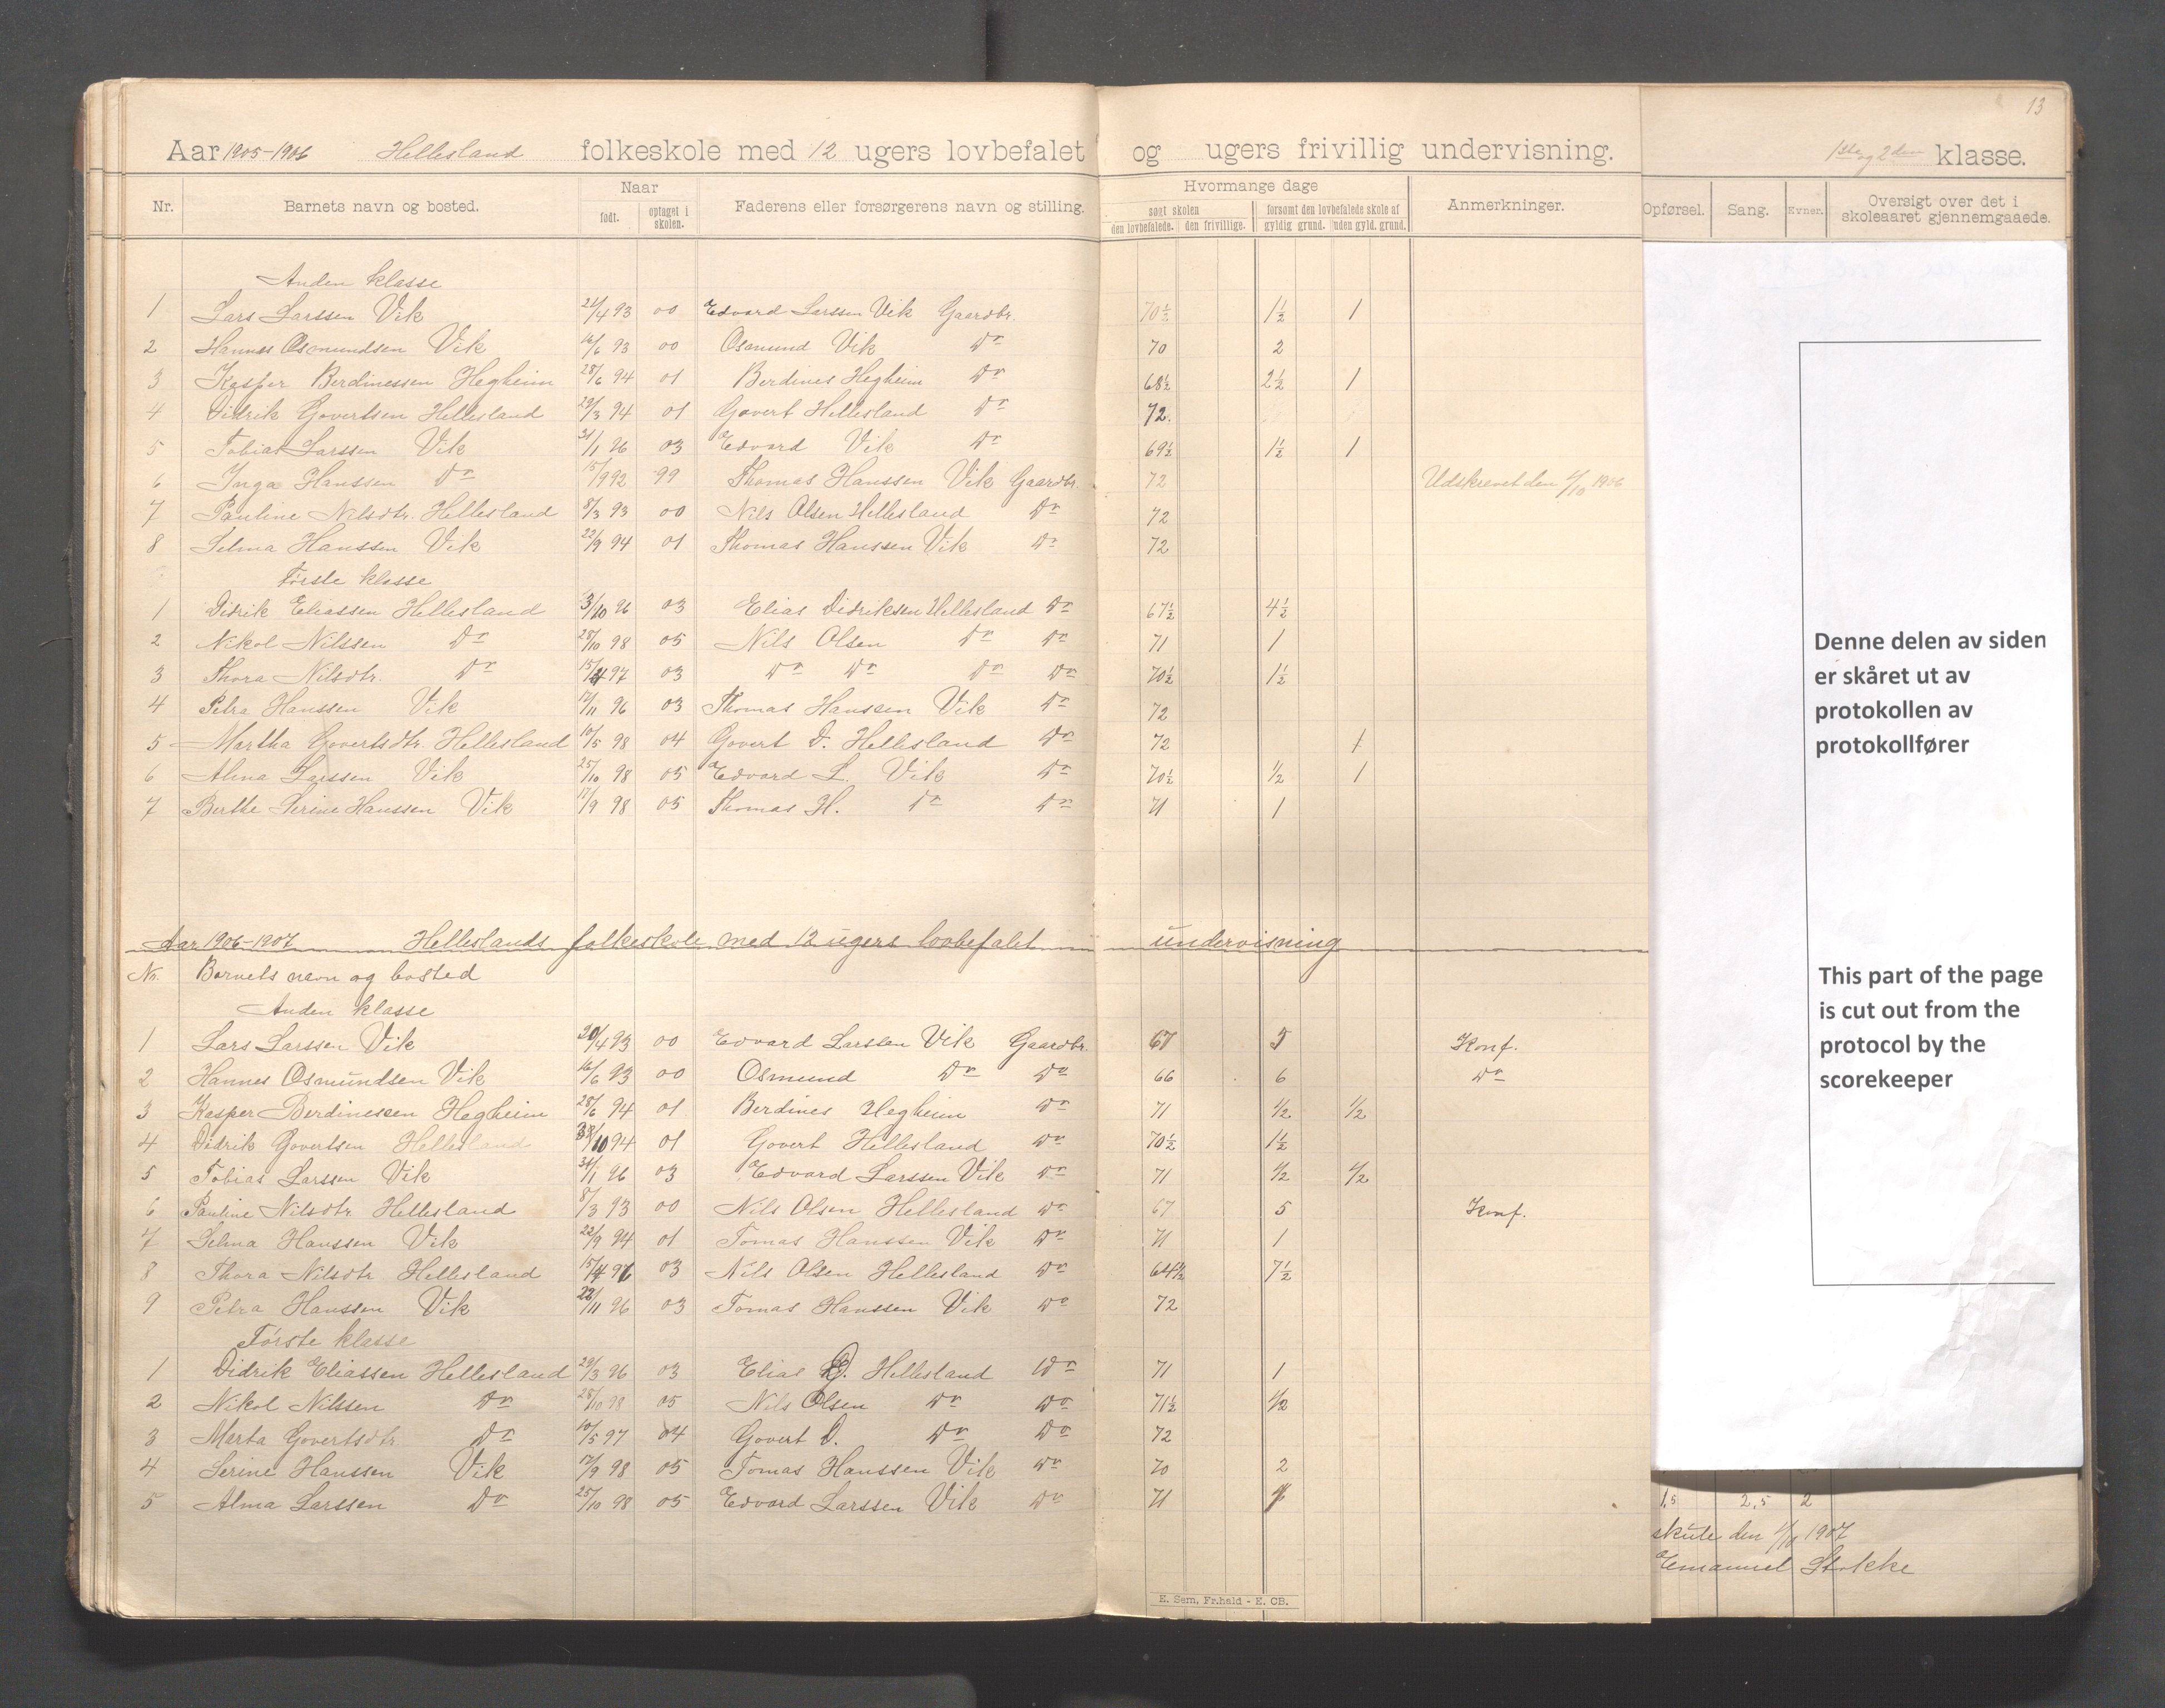 13
Aar 1905-1906 Hellesland folkeskole med 12 ugers lovbefalet og ugers frivillig undervisning. 1ste og 2den klasse.
Nr. Barnets navn og bosted. Naar født. optaget i skolen. Faderens eller forsørgerens navn og stilling. Hvormange dage søgt skolen den lovbefalede. den frivillige. forsømt den lovbefalede skole af gyldig grund. uden gyld. grund. Anmerkninger. Opførsel. Sang. Evner. Oversigt over det i skoleaaret gjennemgaaede.
Anden klasse
1 Lars Larssen Vik 21/4 93 00 Edvard Larssen Vik Gaardbr. 70½ 1½ 1
2 Hannes Osmundsen Vik 16/6 93 00 Osmund Vik Do 70 2
3 Kasper Berdinessen Hegheim 28/6 94 01 Berdines Hegheim Do 68½ 2½ 1
4 Didrik Govertsen Hellesland 29/3 94 01 Govert Hellesland Do 72.
5 Tobias Larssen Vik 31/1 96 03 Edvard Vik Do 69½ 1½ 1
6 Inga Hanssen Do 15/9 92 99 Thomas Hanssen Vik Gaardbr. 72 Udskrevet den 4/10 1906
7 Pauline Nilsdtr. Hellesland 8/3 93 00 Nils Olsen Hellesland Do 72
8 Selma Hanssen Vik 22/9 94 01 Thomas Hanssen Vik Do 72
Første klasse
1 Didrik Eliassen Hellesland 3/10 96 03 Elias Didriksen Hellesland Do 67½ 4½
2 Nikol Nilssen Do 28/10 98 05 Nils Olsen Do Do 71 1
3 Thora Nilsdtr. Do 15/4 97 03 Do Do Do Do 70½ 1½
4 Petra Hanssen Vik 17/11 96 03 Thomas Hanssen Vik Do 72
5 Martha Govertsdtr. Hellesland 10/5 98 04 Govert D. Hellesland Do 72 1
6 Alma Larssen Vik 25/10 98 05 Edvard L. Vik Do 70½ ½ 1
7 Berthe Serine Hanssen Vik 17/9 98 05 Thomas H. Do Do 71 1
Aar 1906-1907 Helleslands folkeskole med 12 ugers lovbefalet undervisning
Nr. Barnets navn og bosted
Anden klasse
1 Lars Larssen Vik /4 93 00 Edvard Larssen Vik Gaardbr. 67 5 Konf.
2 Hannes Osmundsen Vik 16/6 93 00 Osmund Do Do 66 6 Do
3 Kasper Berdinessen Hegheim 28/6 94 01 Berdines Hegheim Do 71 ½ ½
4 Didrik Govertsen Hellesland /10 94 01 Govert Hellesland Do 70½ 1½
5 Tobias Larssen Vik 31/1 96 03 Edvard Larssen Vik Do 71 ½ ½
6 Pauline Nilsdtr Hellesland 8/3 93 00 Nils Olsen Hellesland Do 67 5 Konf.
7 Selma Hanssen Vik 22/9 94 01 Tomas Hanssen Vik Do 71 1
8 Thora Nilsdtr Hellesland 15/4 03 Nils Olsen Hellesland Do 64½ 7½
9 Petra Hanssen Vik /11 96 03 Tomas Hanssen Vik Do 72
Første klasse
1 Didrik Eliassen Hellesland 29/3 96 03 Elias D. Hellesland Do 71 1
2 Nikol Nilssen Do 28/10 98 05 Nils Olsen Do Do 71½ ½
3 Marta Govertsdtr Do 10/5 97 04 Govert D. Do Do 72
4 Serine Hanssen Vik 17/9 98 05 Tomas Hanssen Vik Do 70 2
5 Alma Larssen Do 25/10 98 05 Edvard Larssen Vik Do 71
1,5 2,5 2
skute den 1/10 1907
Emanuel Stokke
E. Sem, Fr.hald - E. CB.
Denne delen av siden
er skåret ut av
protokollen av
protokollfører
This part of the page
is cut out from the
protocol by the
scorekeeper